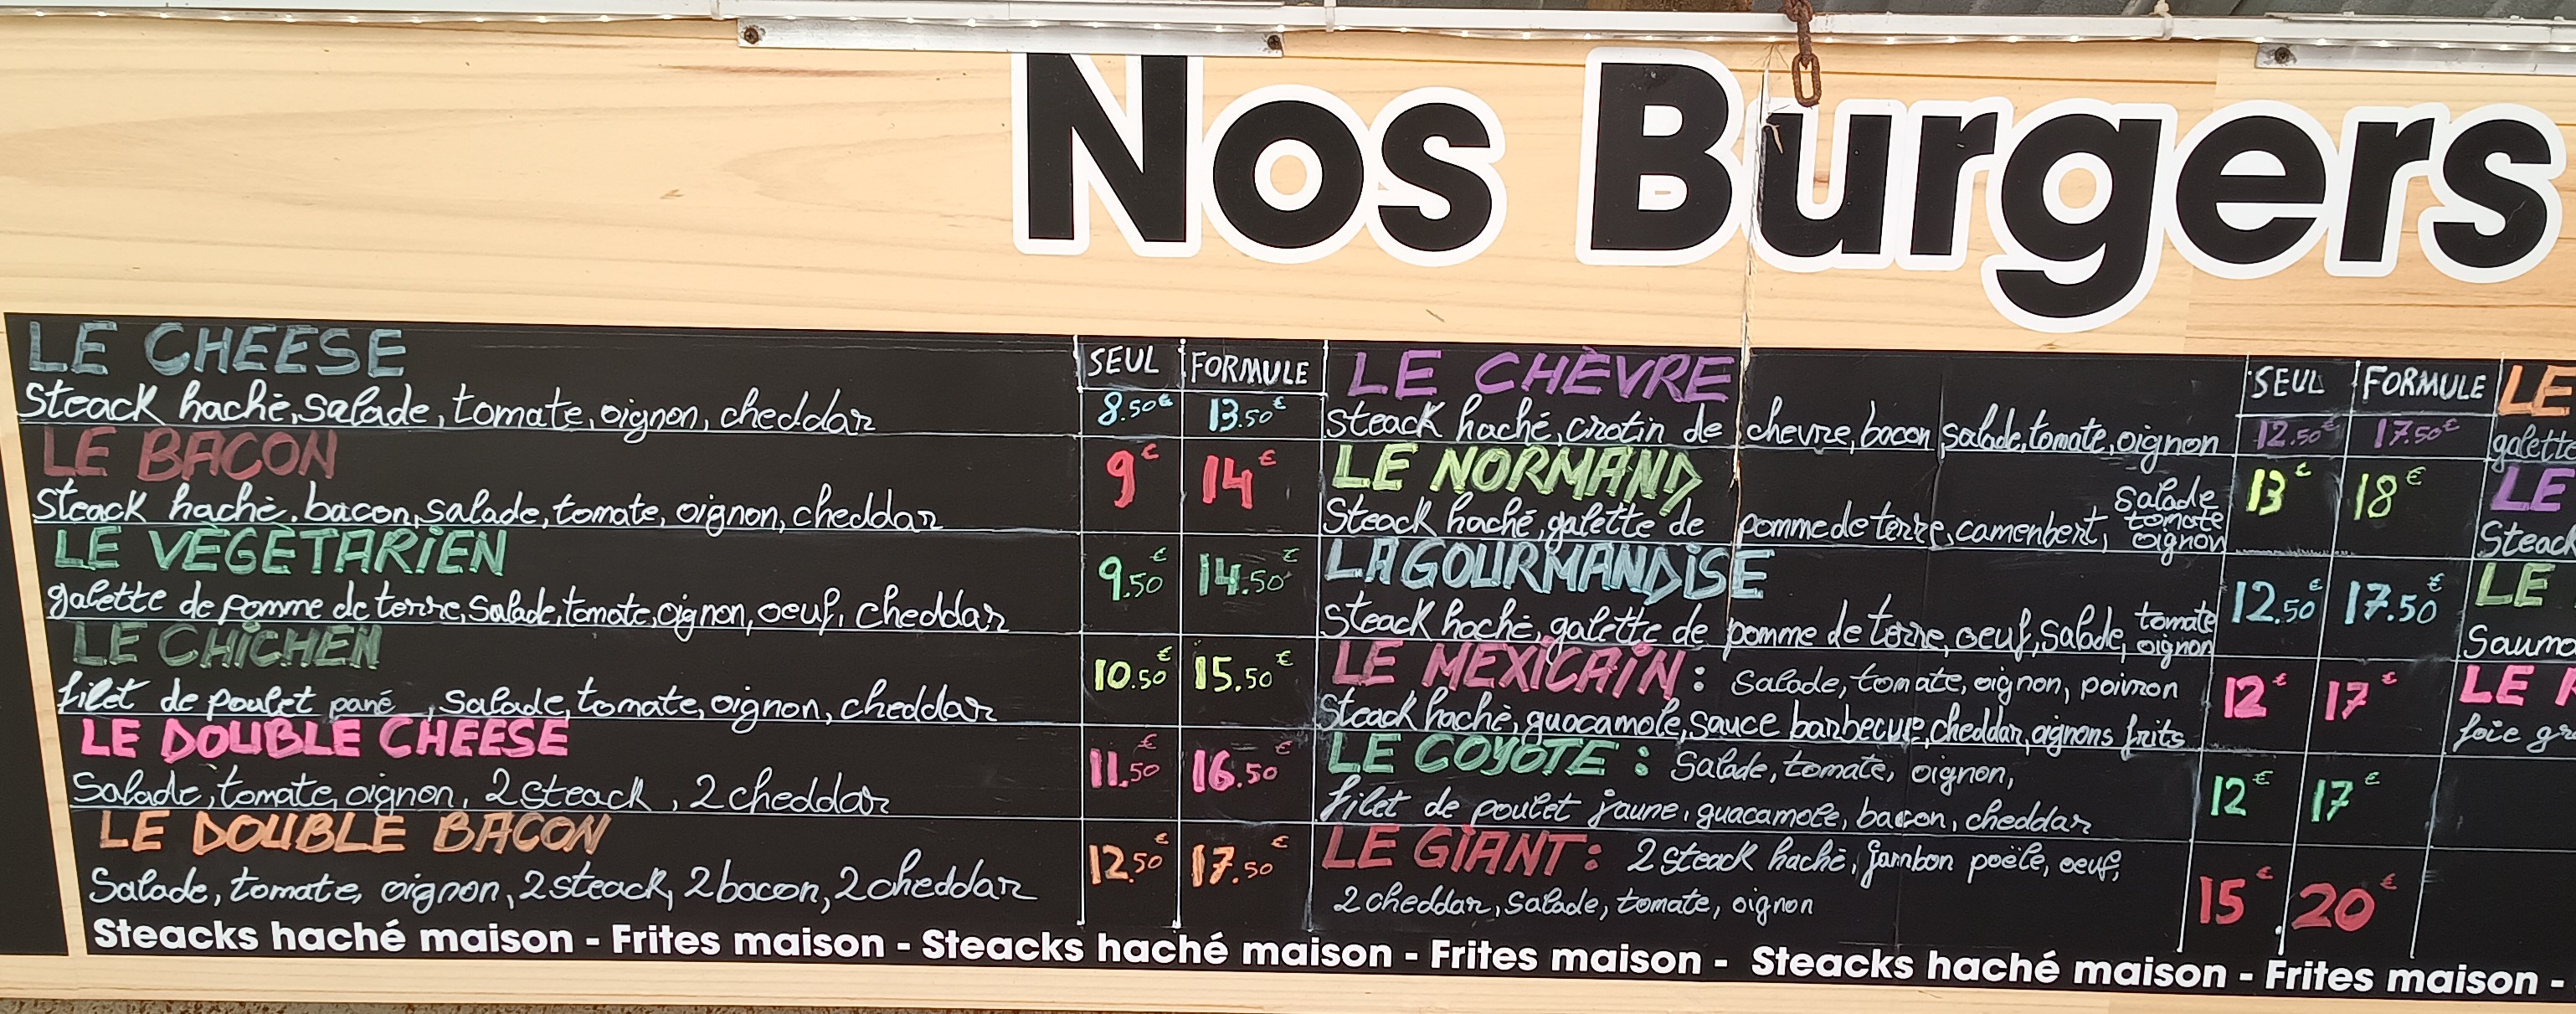 Nos Burgers
LE CHEESE
SEUL FORMULE
Steack haché, salade, tomate, oignon, cheddar 8.50€ 13.50€
LE BACON
Steack haché, bacon, salade, tomate, oignon, cheddar 9€ 14€
LE VÈGÈTARIEN
galette de pomme de terre, salade, tomate, oignon, oeuf, cheddar 9.50€ 14.50€
LE CHICHEN
filet de poulet pané, salade, tomate, oignon, cheddar 10.50€ 15.50€
LE DOUBLE CHEESE
Salade, tomate, oignon, 2 steack, 2 cheddar 11.50€ 16.50€
LE DOUBLE BACON
Salade, tomate, oignon, 2 steack, 2 bacon, 2 cheddar 12.50€ 17.50€
LE CHÈVRE
SEUL FORMULE
Steack haché, crotin de chevre, bacon, salade, tomate, oignon 12.50€ 17.50€
LE NORMAND
Steack haché, galette de pomme de terre, camenbert, salade tomate oignon 13€ 18€
LA GOURMANDISE
Steack haché, galette de pomme de terre, oeuf, salade, tomate oignon 12.50€ 17.50€
LE MEXICAIN : salade, tomate, oignon, poivron
Steack haché, guacamole, sauce barbecue, cheddar, oignons frits 12€ 17€
LE COYOTE : Salade, tomate, oignon,
filet de poulet jaune, guacamole, bacon, cheddar 12€ 17€
LE GIANT : 2 steack haché, jambon poële, oeuf,
2 cheddar, salade, tomate, oignon 15€ 20€
LE
galette
LE
Steack
LE
Saumo
LE
foie gr
Steacks haché maison - Frites maison - Steacks haché maison - Frites maison - Steacks haché maison - Frites maison -